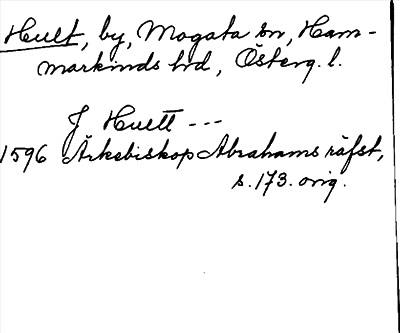 Hult, by, Mogata sn, Ham-
markinds hd, Österg. l.
J Huett ---
1596 Ärkebiskop Abrahams räfst,
s. 173. orig.